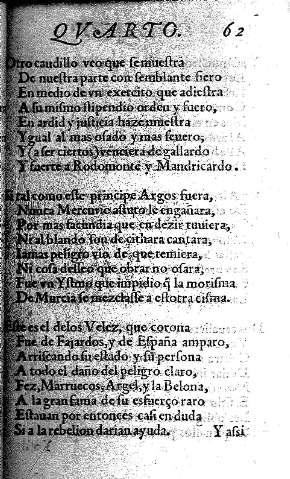 QVARTO. 62
Otro caudillo veo que se muestra
De nuestra parte con semblante fiero
En medio de vn exercito que adiestra
A su mismo stipendio orden y fuero,
En ardid y justicia haze muestra
Ygual al mas osado y mas seuero,
Y (a ser ciertos) venciera de gallardo
Y fuerte a Rodomonte y Mandricardo.
Si tal como este principe Argos fuera,
Nunca Mercurio astuto le engañara,
Por mas facundia que en dezir tuuiera,
Ni al blando son de cithara cantara,
Iamas peligro vio de que temiera,
Ni cosa que obrar no osara,
Fue vn Ystmo que impidio q̃ la morisma
De Murcia se mezclasse a estotra cisma.
Este es el delos Velez, que corona
Fue de Fajardos, y de España amparo,
Arriscando su estado y su persona
A todo el daño del peligro claro,
Fez, Marruecos, Argel, y la Belona,
A la gran fama de su esfuerço raro
Estauan por entonces casi en duda
Si a la rebelion darian ayuda. Y assi